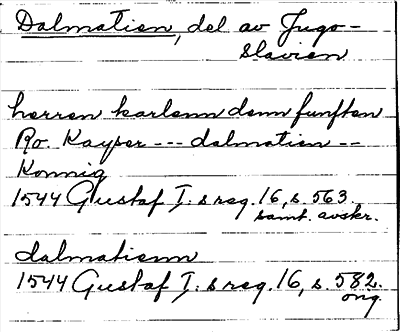 Dalmatien, del av Jugo-
slavien
herren karlenn denn funfften
Ro. Kayser --- dalmatien --
Konnig
1544 Gustaf I:s reg. 16, s. 563.
samt. avskr.
dalmatienn
1544 Gustaf I:s reg. 16, s. 582.
orig.